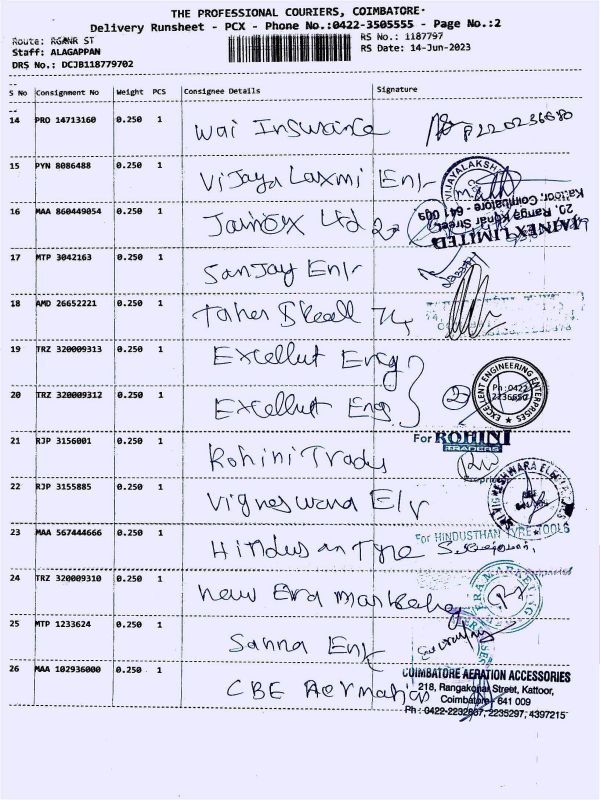 THE PROFESSIONAL COURIERS, COIMBATORE.
Delivery Runsheet - PCX - Phone No.:0422-3505555 - Page No.:2
Route: RGANR ST
RS No.: 1187797
Staff: ALAGAPPAN
RS Date: 14-Jun-2023
DRS No.: DCJB118779702
S No Consignment No Weight PCS Consignee Details Signature
14 PRO 14713160 0.250 1 Wai Insurance
15 PYN 8086488 0.250 1 Vijaya Laxmi Enr
VIJAYALAKSH
16 MAA 860449054 0.250 1 Jainex Ltd
JAINEX LIMITED
20, Ranga Konar Street,
Kattoor, Coimbatore - 641 009
17 MTP 3042163 0.250 1 Sanjay Enr
18 AMD 26652221 0.250 1 Taher
19 TRZ 320009313 0.250 1 Excellent Engg
20 TRZ 320009312 0.250 1 Excellent Eng
2
EXCELLENT ENGINEERING ENTERPRISES
Ph : 0422
2236650
21 RJP 3156001 0.250 1 Rohini Trads
For ROHINI
TRADERS
22 RJP 3155885 0.250 1 Vigneswara Elr
SRI VIGNESHWARA ELE
23 MAA 567444666 0.250 1 Hindusan Tyre
For HINDUSTHAN TYRE TOOLS
24 TRZ 320009310 0.250 1 New Era Marketing
ERA MARKETING
25 MTP 1233624 0.250 1 Sanna Enr
26 MAA 102936000 0.250 1 CBE
COIMBATORE AERATION ACCESSORIES
218, Rangakonar Street, Kattoor,
Coimbatore - 641 009
Ph : 0422-2232867, 2235297, 4397215